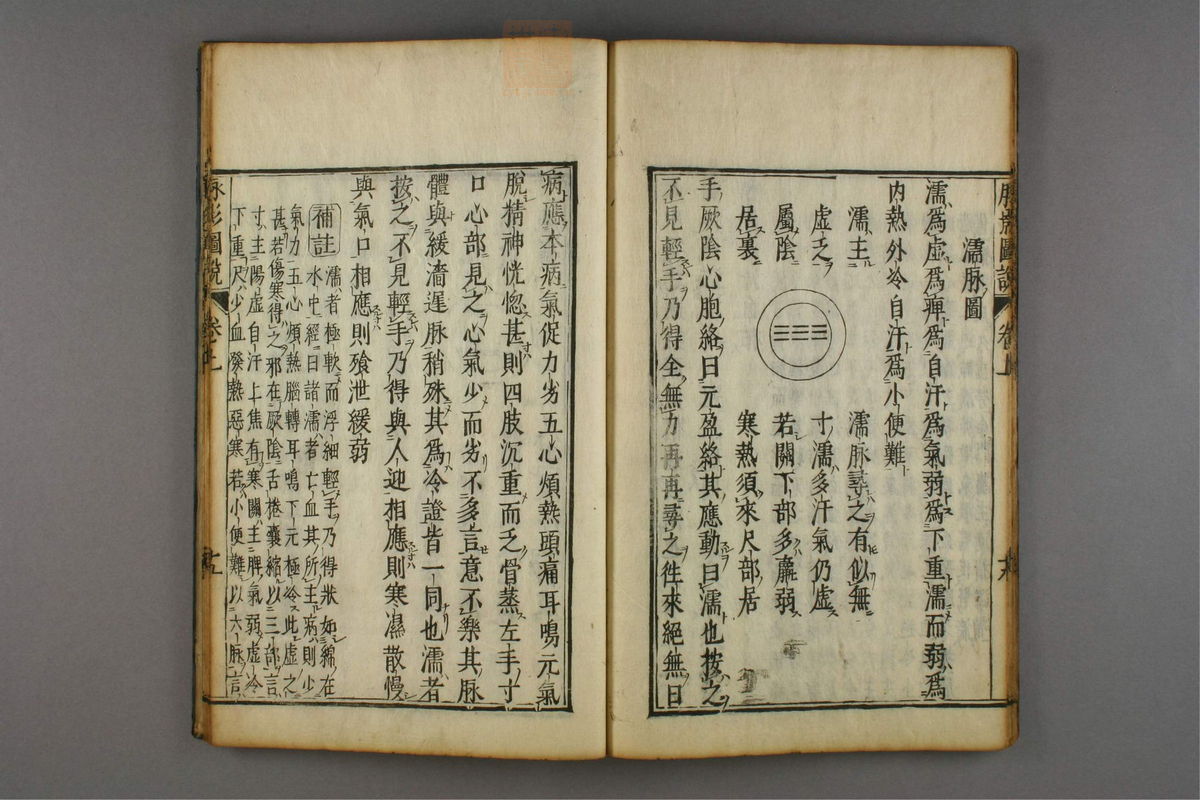 脉影圖說 卷上
濡脉圖
濡爲虛爲痺爲自汗爲氣弱爲下重濡而弱爲
內熱外冷自汗爲小便難
濡主 濡脉尋之有似無
虛乏 寸濡多汗氣仍虛
屬陰 若關下部多蕭弱
居裏 寒熱須來尺部居
手厥陰心胞絡曰元盈絡其應動曰濡也按之
不見輕手乃得全無力再再尋之徃來絕無曰
病應本病氣促力劣五心煩熱頭痛耳鳴元氣
脫精神恍惚甚則四肢沉重而乏骨蒸左手寸
口心部見之心氣少而劣不多言意不樂其脉
體與緩濇遲脉稍殊其爲冷證皆一同也濡者
按之不見輕手乃得與人迎相應則寒濕散慢
與氣口相應則飱泄緩弱
補註 濡者極軟而浮細輕手乃得狀如綿在
水中經曰諸濡者亡血其所主病則少
氣力五心煩熱腦轉耳鳴下元極冷此虛之
甚若傷寒得之邪在厥陰舌捲囊縮以三部言
寸主陽虛自汗上焦有寒關主脾氣弱虛冷
下重尺少血發熱惡寒若小便難以六脉言
脉影圖說 卷上